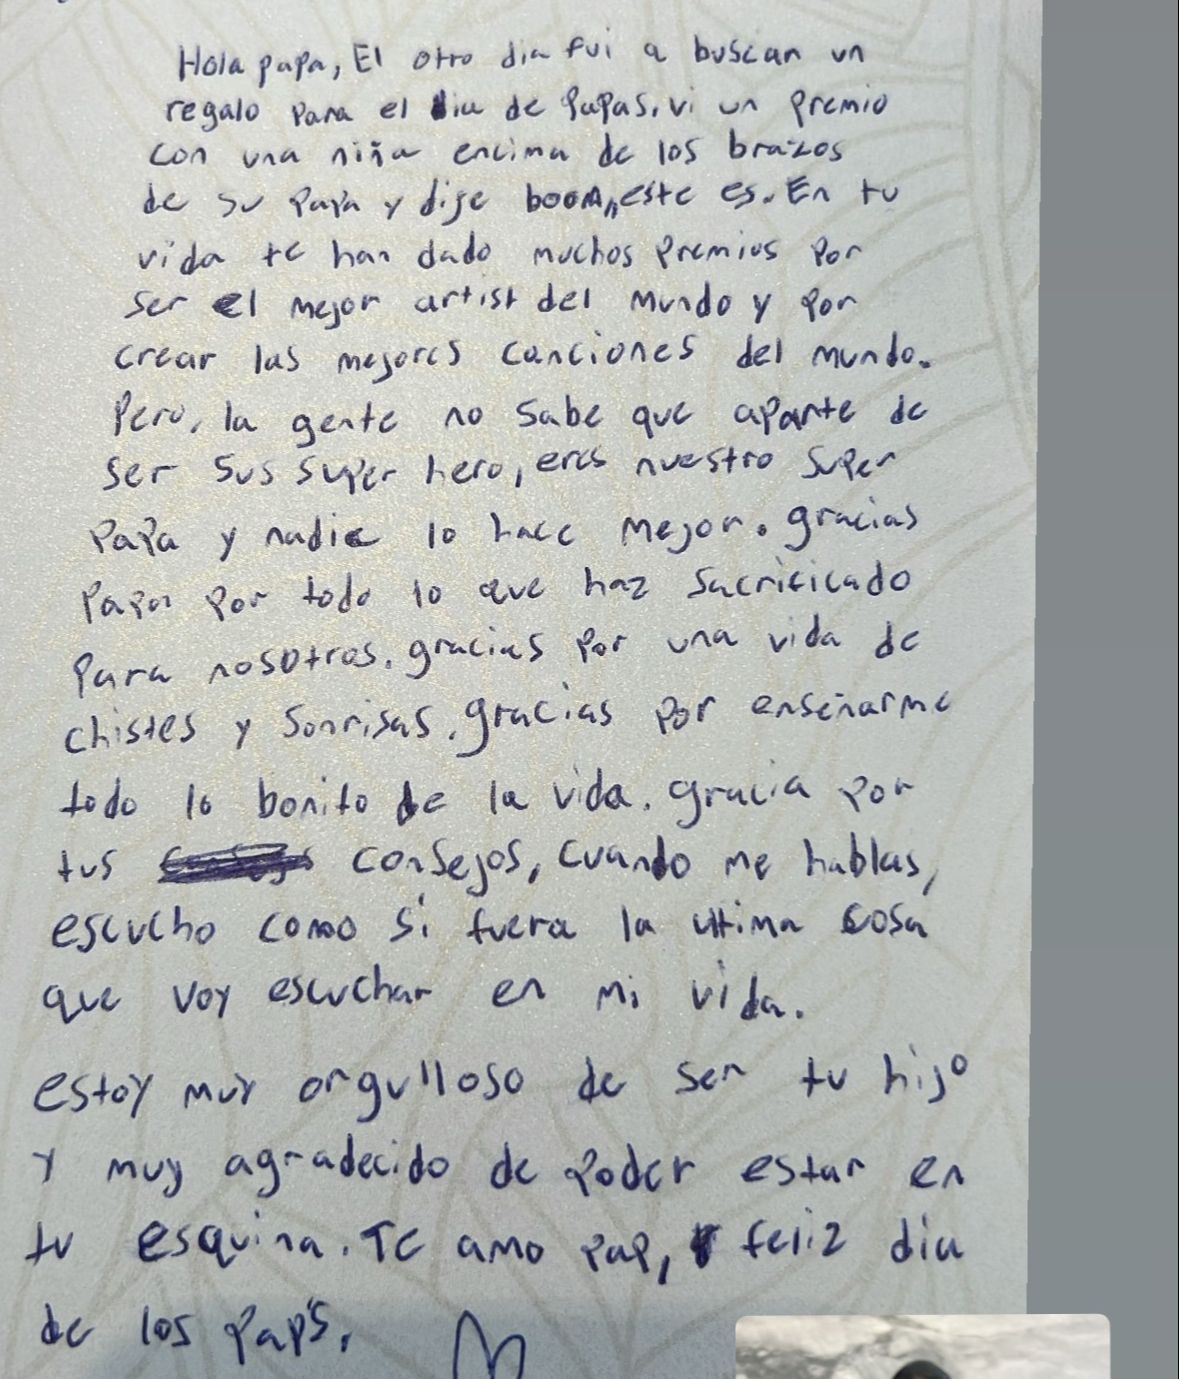 Hola papa, El otro dia fui a buscar un
regalo para el dia de papas, vi un premio
con una niña encima de los brazos
de su papa y dije boom, este es. En tu
vida te han dado muchos premios por
ser el mejor artist del mundo y por
crear las mejores canciones del mundo.
Pero, la gente no sabe que aparte de
ser sus super hero, eres nuestro super
papa y nadie lo hace mejor. gracias
papa por todo lo que haz sacrificado
para nosotros. gracias por una vida de
chistes y sonrisas. gracias por enseñarme
todo lo bonito de la vida. gracia por
tus consejos, cuando me hablas,
escucho como si fuera la ultima cosa
que voy escuchar en mi vida.
estoy muy orgulloso de ser tu hijo
y muy agradecido de poder estar en
tu esquina. Te amo pap, feliz dia
de los pap's.